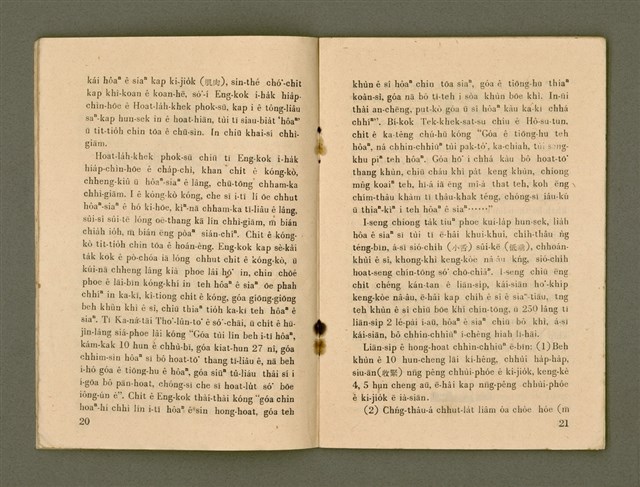 kái hôaⁿ ê siaⁿ kap ki-jio̍k (肌肉), sin-thé chó͘-chit
kap khì-koan ê koan-hē, só͘-í Eng-kok i-ha̍k hia̍p-
chìn-hōe ê Hoat-la̍h-khek phok-sū, kap i ê tông-liâu
saⁿ-kap hun-sek ín ê hoat-hiān, tùi tī siau-bia̍t 'hôaⁿ'
ū ti̍t-tio̍h chin tōa ê chū-sìn. In chiū khai-sí chhì-
giām.
Hoat-la̍h-khek phok-sū chiū tī Eng-kok i-ha̍k
hia̍p-chìn-hōe ê cha̍p-chì, khan chi̍t ê kóng-kò,
chheng-kiû ū hôaⁿ-siaⁿ ê lâng, chū-tōng chham-ka
chhì-giām. I ê kóng-kò kóng, che sī i-tī lí ōe chhut
hôaⁿ-siaⁿ ê hó ki-hōe, kìⁿ-nā chham-ka tī-liâu ê lâng,
súi-sî súi-tē lóng oē-thang kā lín chhì-giām, m̄ bián
chia̍h io̍h, m̄ bián éng pōaⁿ siân-chîⁿ. Chit ê kóng-
kò tit-tio̍h chin tōa ê hoán-èng. Eng-kok kap sè-kài
ta̍k kok ê pò-chóa iā lóng chhut chit ê kóng-kò, ū
kúi-nā chheng lâng kià phoe lâi hō͘ in, chin chōe
phoe ê lāi-bīn kóng-khí in teh hôaⁿ ê siaⁿ ōe phah
chhíⁿ in ka-kī, kî-tiong chi̍t ê kóng, góa giōng-giōng
beh khùn khì ê sî, chiū thiaⁿ tio̍h ka-kī teh hôaⁿ ê
siaⁿ. Tī Ka-ná-tāi Tho͘-lûn-to͘ ê só͘-chāi, ū chi̍t ê hū-
jîn-lâng siá-phoe lâi kóng "Góa tùi lín beh i-tī hôaⁿ,
kám-kak 10 hun ê chhù-bī, góa kiat-hun 27 nî, góa
chhim-sìn hôaⁿ sī bô hoat-tō͘ thang tī-liâu ê, nā beh
i-hó góa ê tiōng-hu ê hôaⁿ, góa siūⁿ tû-liâu thâi sí i
í-gōa bô pān-hoat, chóng-sī che sī hoat-lu̍t só͘ bōe
iông-ún ê". Chi̍t ê Eng-kok thài-thài kóng "góa chin
hoaⁿ-hí chhì lín i-tī hôaⁿ êⁿsin hong-hoat, góa teh
20
khùn ê sî hôaⁿ chin tōa siaⁿ, góa ê tiōng-hu thiaⁿ
koàn-sì, góa nā bô tī-teh i sòa khùn bōe khì. In-ūi
thài an-chēng, put-kò góa ū sî hôaⁿ kàu ka-kī chhá
chhíⁿ". Bí-kok Tek-khek-sat-su chiu ê Hô-su-tun,
chi̍t ê ka-têng chú-hū kóng "Góa ê tiōng-hu teh
hôaⁿ, ná chhin-chhiūⁿ tùi pak-tó͘, ka-chiah, tùi sang-
khu piⁿ teh hôaⁿ. Góa hō͘ i chhá kàu bô hoat-tō͘
thang khùn, chiū cháu khì pa̍t keng khùn, chiong
mn̂g koaiⁿ teh, hī-á iā ēng mi̍-á that teh, koh ēng
chim-thâu khàm tī thâu-khak téng, chóng-sī iáu-kú
ū thiaⁿ-kìⁿ i teh hôaⁿ ê siaⁿ······"
I-seng chiong ta̍k tiuⁿ phoe kui-la̍p hun-sek, lia̍h
hôaⁿ ê siaⁿ sī tùi tī ē-hâi khui-khui, chi̍h-thâu n̍g
téng-bīn, á-sī sió-chi̍h (小舌) sûi-kē (低垂), chhoán-
khùi ê sî, khong-khì keng-kòe nâ-âu kńg, sió-chi̍h
hoat-seng chín-tōng só͘ chō-chiâⁿ". I-seng chiū ēng
chit chéng kán-tan ê liān-si̍p, kái-siān ho͘-khip
keng-kòe nâ-âu, ē-hâi kap chi̍h ê sī ê siaⁿ-tiâu, tng
teh khùn ê sî chiū bōe khì chín-tōng, ū 250 lâng tī
liān-si̍p 2 lé-pài í-āu, hôaⁿ ê siaⁿ chiū bô khì, á-sī
kái-siān, bô chhin-chhiūⁿ í-chêng hiah lī-hāi.
Liān-si̍p ê hong-hoat chhin-chhiūⁿ ē-bīn: (1) Beh
khùn ê 10 hun-cheng lāi kí-hêng, chhùi ha̍p-ha̍p,
siu-ân(收緊) nn̄g pêng chhùi-phóe ê ki-jio̍k, keng-kè
4, 5 hun cheng āu, ē-hâi kap nn̄g-pêng chhùi-phóe
ê ki-jio̍k ē ià-siān.
(2) Chn̂g-thâu-á chhut-la̍t liâm óa chóe hōe (m
21